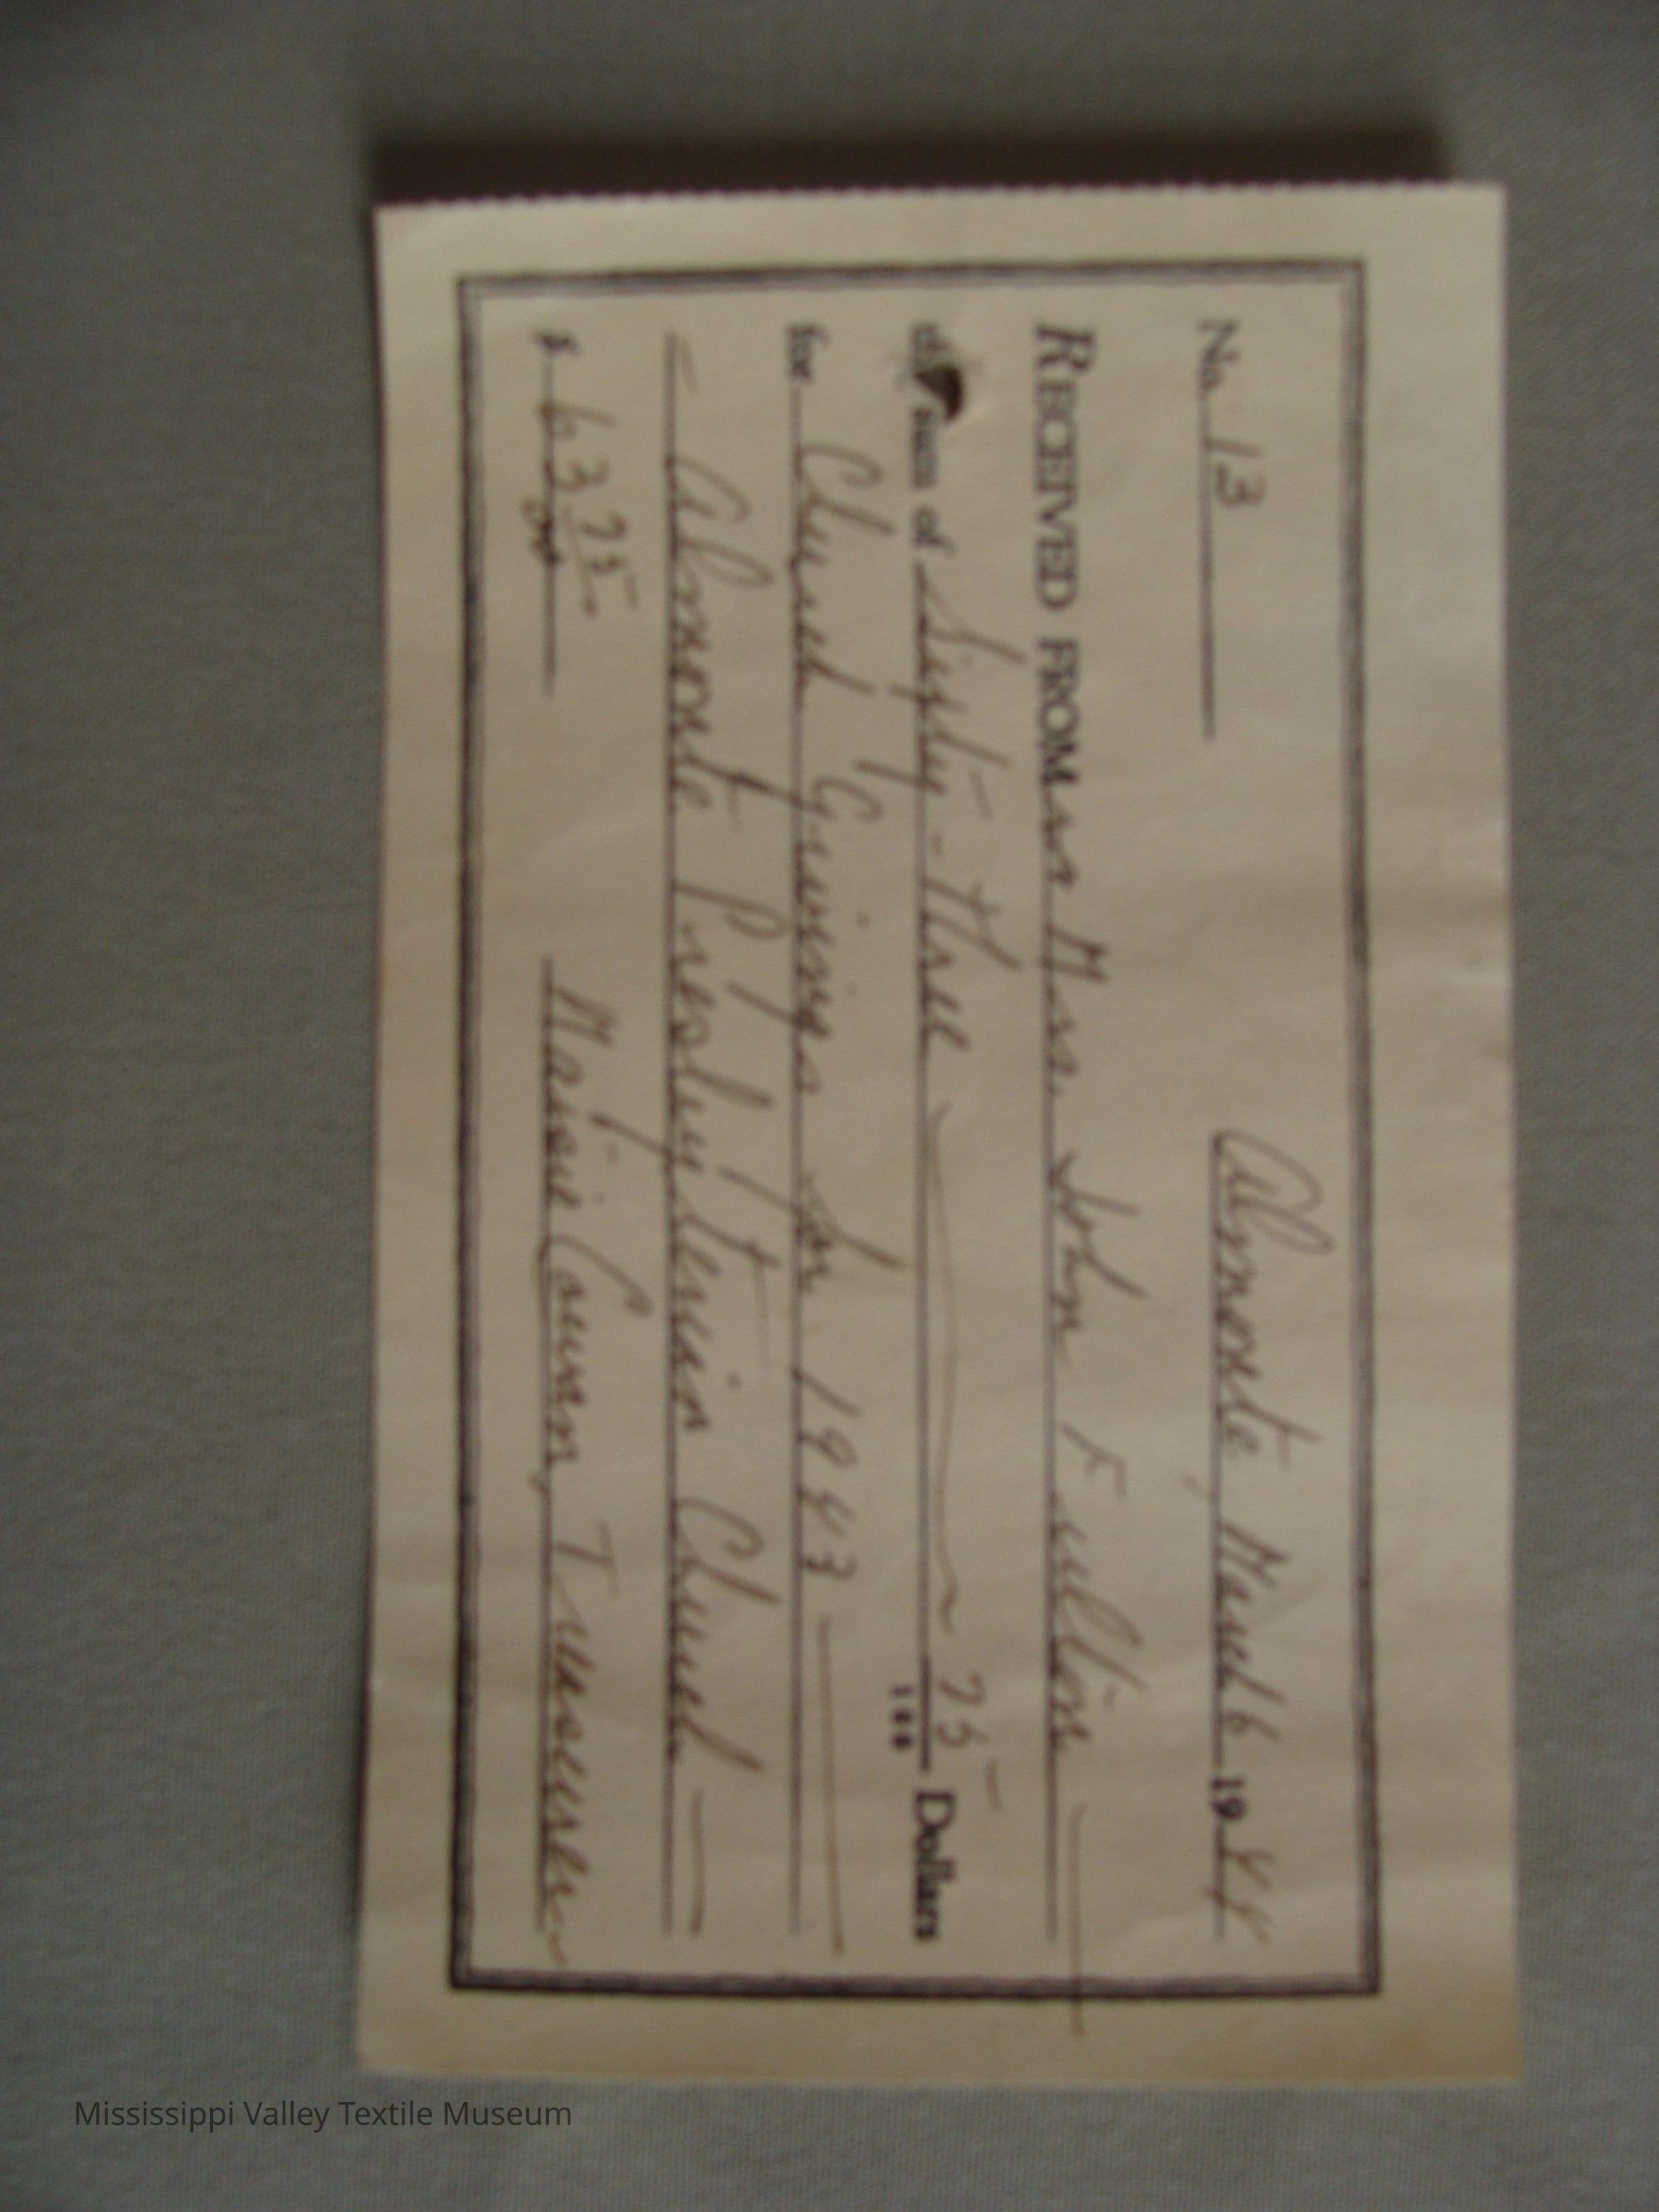 No. 13 Almonte, March 6 1944
RECEIVED FROM Mrs. John Fulton
the sum of Sixty-three 25/100 Dollars
for Church Givings for 1943
Almonte Presbyterian Church
$ 63 25/00 Marjorie Cowan, Treasurer
Mississippi Valley Textile Museum